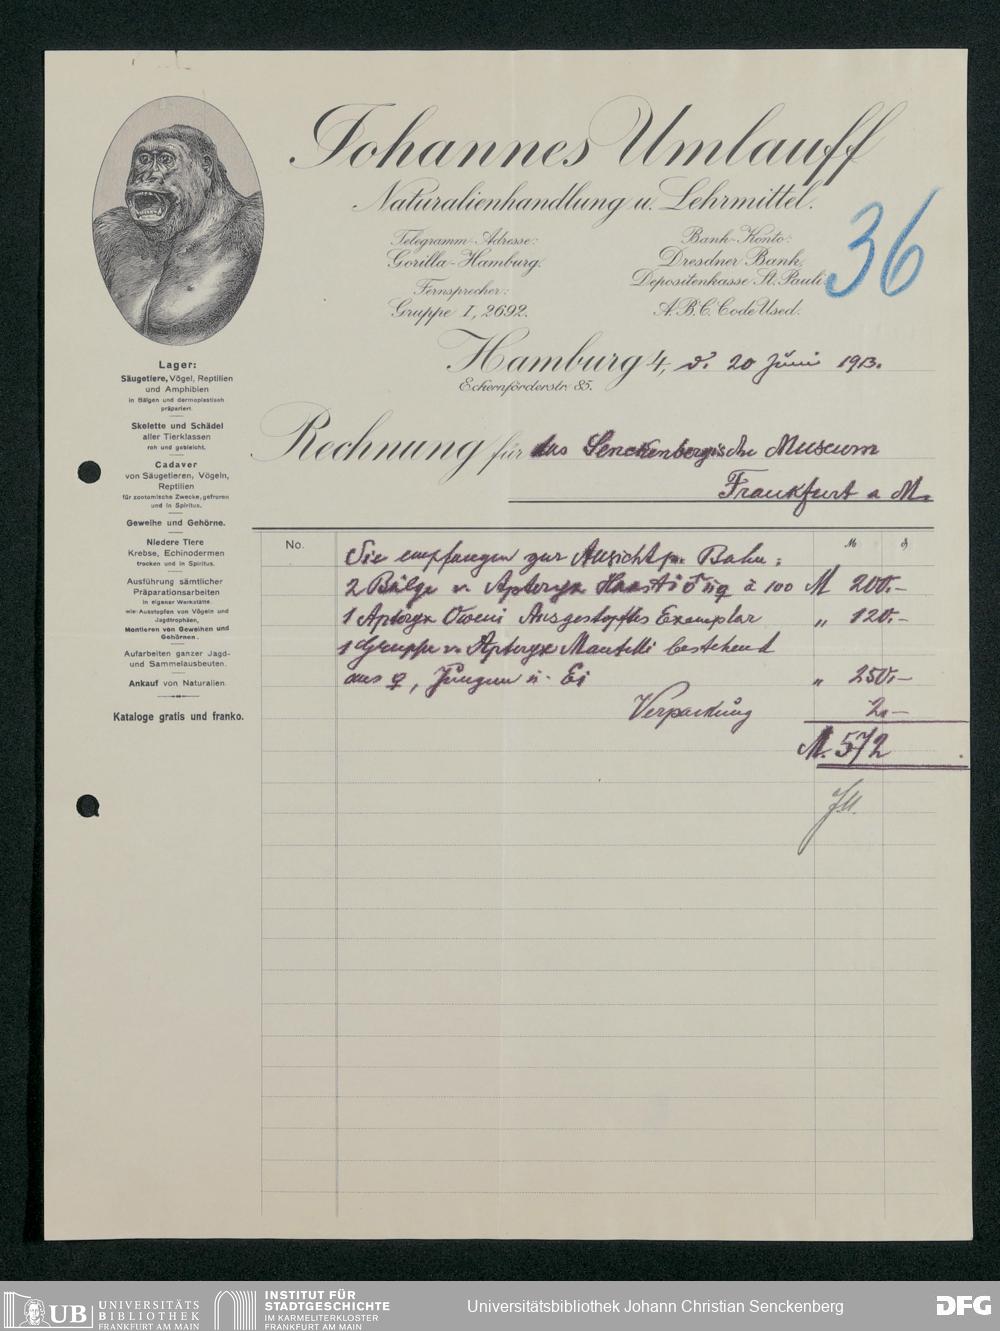 Johannes Umlauff
Naturalienhandlung u. Lehrmittel.
36
Telegramm-Adresse:
Gorilla-Hamburg.
Fernsprecher:
Gruppe I, 2692.
Bank-Konto:
Dresdner Bank,
Depositenkasse St. Pauli
A.B.C. Code Used.
Hamburg 4, d. 20 Juni 1913.
Eckernförderstr. 85.
Lager:
Säugetiere, Vögel, Reptilien
und Amphibien
in Bälgen und dermoplastisch
präpariert.
Skelette und Schädel
aller Tierklassen
roh und gebleicht.
Cadaver
von Säugetieren, Vögeln,
Reptilien
für zootomische Zwecke, gefroren
und in Spiritus.
Geweihe und Gehörne.
Niedere Tiere
Krebse, Echinodermen
trocken und in Spiritus.
Ausführung sämtlicher
Präparationsarbeiten
in eigener Werkstätte.
wie: Ausstopfen von Vögeln und
Jagdtrophäen,
Montieren von Geweihen und
Gehörnen.
Aufarbeiten ganzer Jagd-
und Sammelausbeuten.
Ankauf von Naturalien.
Kataloge gratis und franko.
Rechnung für das Senckenbergische Museum
Frankfurt a M.
No.
Sie empfangen zur Ansicht p. Bahn:
2 Bälge v. Apteryx Haasti ♂ u ♀ à 100 M 200.-
1 Apteryx Oweni Ausgestopftes Exemplar " 120.-
1 Gruppe v. Apteryx Mantelli bestehend
aus ♀, Jungen u. Ei " 250.-
Verpackung 2.-
M. 572
UB UNIVERSITÄTS
BIBLIOTHEK
FRANKFURT AM MAIN
INSTITUT FÜR
STADTGESCHICHTE
IM KARMELITERKLOSTER
FRANKFURT AM MAIN
Universitätsbibliothek Johann Christian Senckenberg
DFG